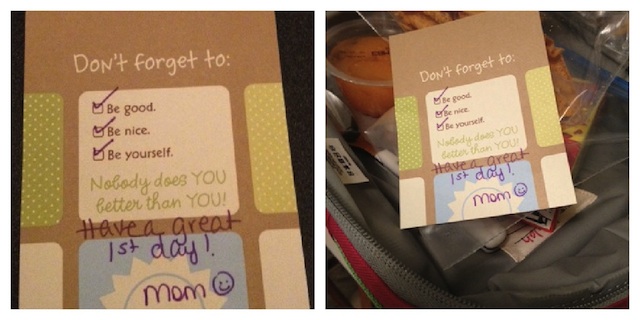 Don't forget to:
Be good.
Be nice.
Be yourself.
Nobody does YOU
better than YOU!
Have a great
1st day!
mom
Don't forget to:
Be good.
Be nice.
Be yourself.
Nobody does YOU
better than YOU!
Have a great
1st day!
mom